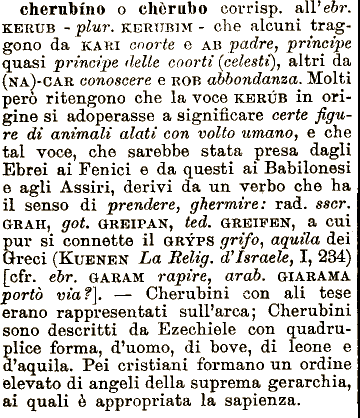 cherubíno o chèrubo corrisp. all'ebr.
KERUB - plur. KERUBIM - che alcuni trag-
gono da KARI coorte e AB padre, principe
quasi principe delle coorti (celesti), altri da
(NA)-CAR conoscere e ROB abbondanza. Molti
però ritengono che la voce KERÚB in ori-
gine si adoperasse a significare certe figu-
re di animali alati con volto umano, e che
tal voce, che sarebbe stata presa dagli
Ebrei ai Fenici e da questi ai Babilonesi
e agli Assiri, derivi da un verbo che ha
il senso di prendere, ghermire: rad. sscr.
GRAH, got. GREIPAN, ted. GREIFEN, a cui
pur si connette il GRÝPS grifo, aquila dei
Greci (KUENEN La Relig. d'Israele, I, 234)
[cfr. ebr. GARAM rapire, arab. GIARAMA
portò via?]. — Cherubini con ali tese
erano rappresentati sull'arca; Cherubini
sono descritti da Ezechiele con quadru-
plice forma, d'uomo, di bove, di leone e
d'aquila. Pei cristiani formano un ordine
elevato di angeli della suprema gerarchia,
ai quali è appropriata la sapienza.